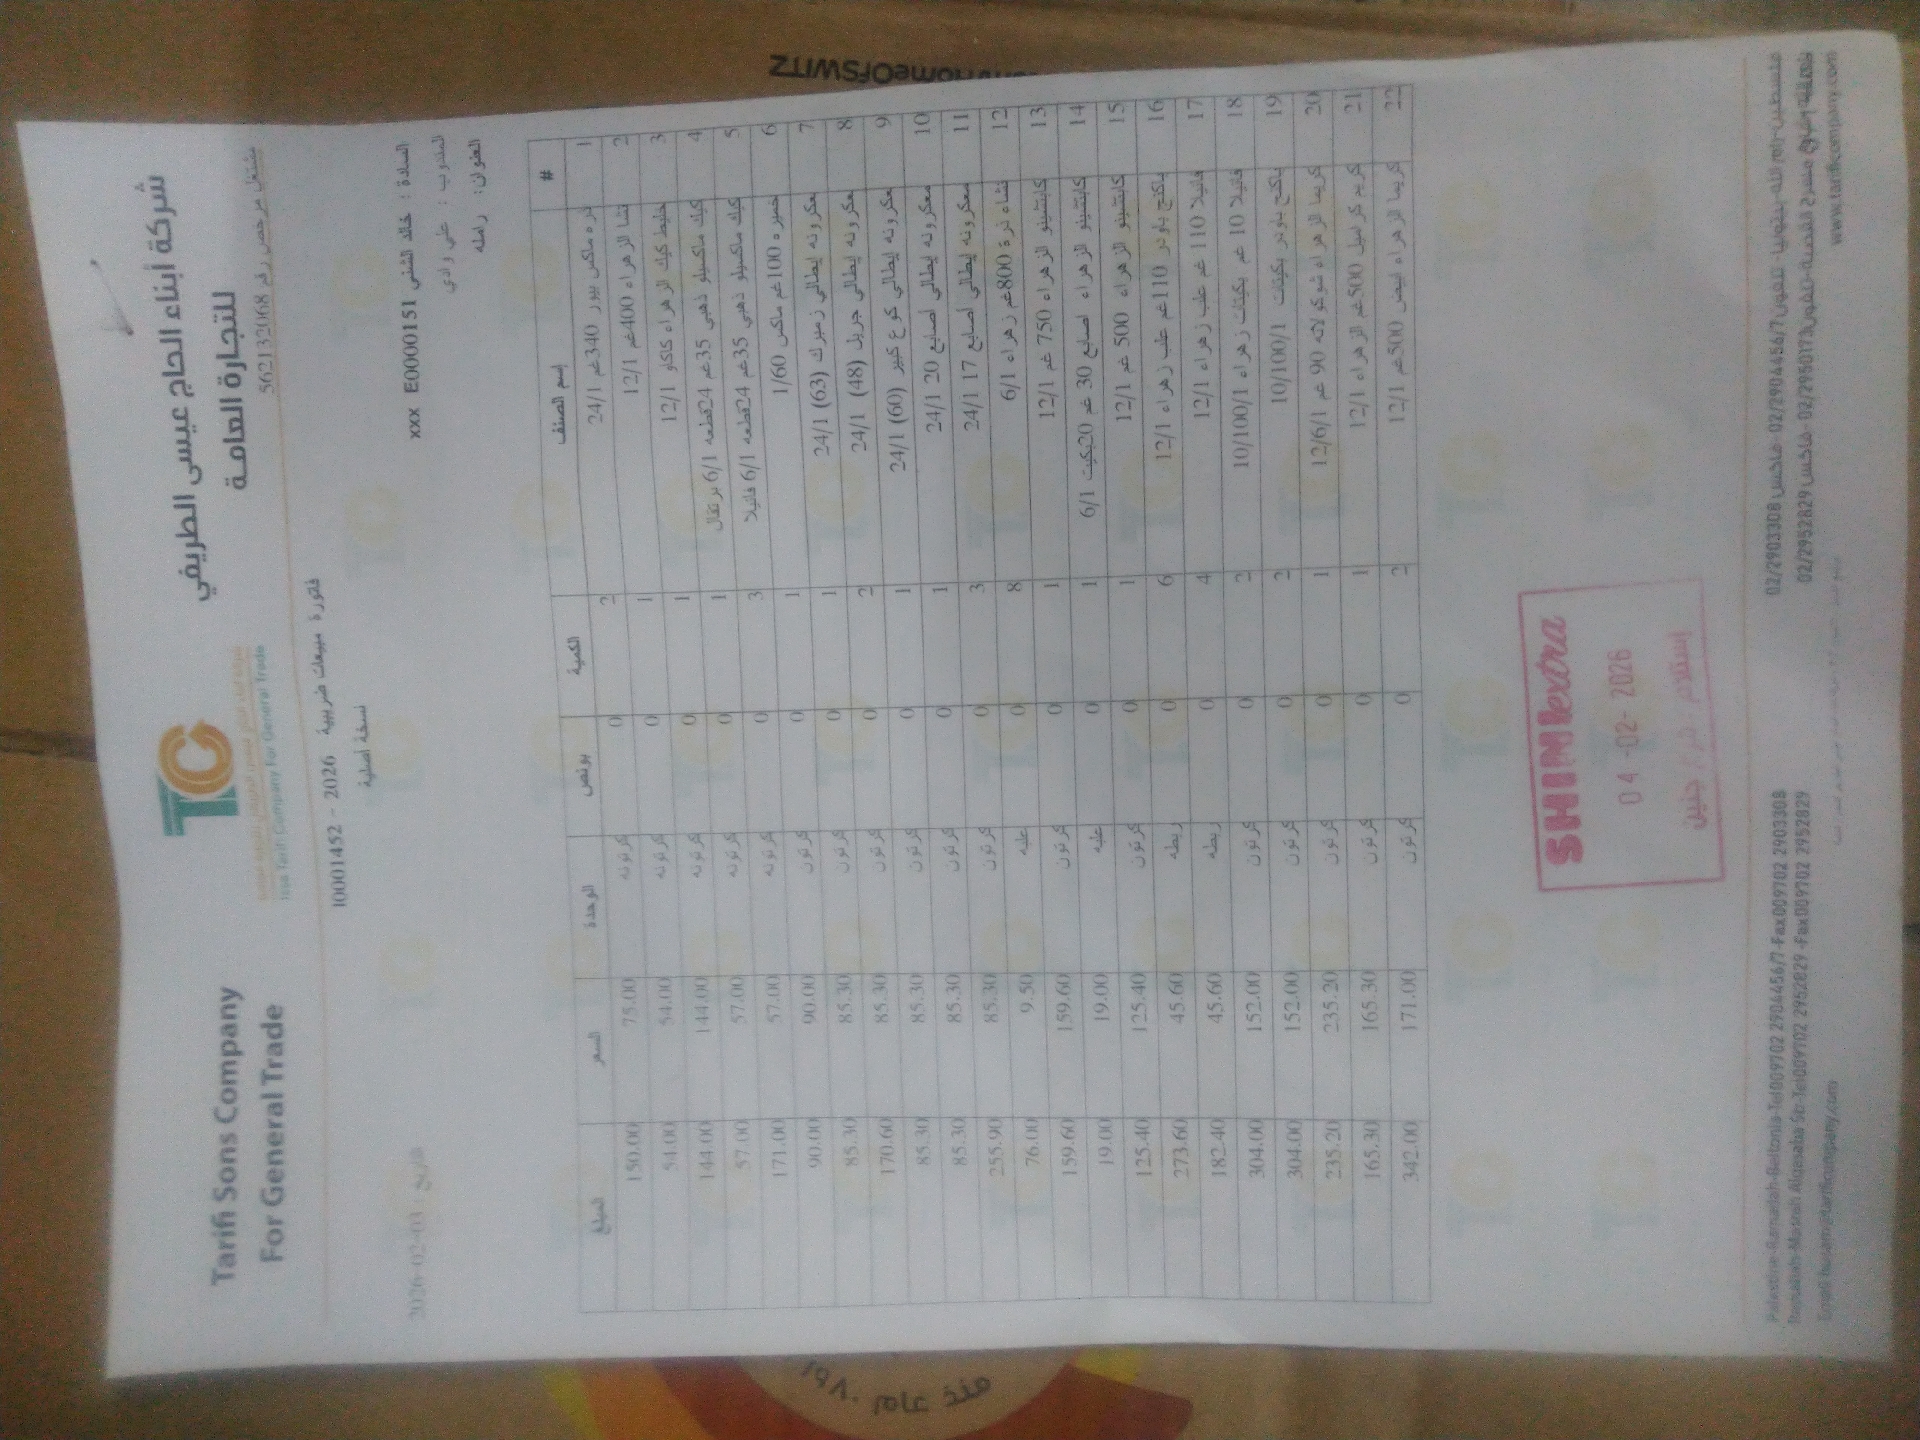 Tarifi Sons Company
For General Trade
TC
شركة أبناء الحاج عيسى الطريفي
للتجارة العامة
مشتغل مرخص رقم 562132068
Issa Tarifi Company For General Trade
فاتورة مبيعات ضريبية 2026 - 10001452
نسخة أصلية
السادة : خالد الشني E0000151 xxx
المندوب : علي وادي
العنوان: رامله
تاريخ 2026-02-03
# إسم الصنف الكمية بونص الوحدة السعر المبلغ
1 ذره ماكس بيور 340غم 24/1 2 0 كرتونه 75.00 150.00
2 نشا الزهراء 400غم 12/1 1 0 كرتونه 54.00 54.00
3 خليط كيك الزهراء كاكاو 12/1 1 0 كرتونه 144.00 144.00
4 كيك ماكسيللو ذهبي 35غم 24قطعه 6/1 برتقال 1 0 كرتونه 57.00 57.00
5 كيك ماكسيللو ذهبي 35غم 24قطعه 6/1 فانيلا 3 0 كرتونه 57.00 171.00
6 خميره 100غم ماكس 1/60 1 0 كرتون 90.00 90.00
7 معكرونه إيطالي زمبرك (63) 24/1 1 0 كرتون 85.30 85.30
8 معكرونه إيطالي جريل (48) 24/1 2 0 كرتون 85.30 170.60
9 معكرونه إيطالي كوع كبير (60) 24/1 1 0 كرتون 85.30 85.30
10 معكرونه إيطالي اصابع 20 24/1 1 0 كرتون 85.30 85.30
11 معكرونه إيطالي أصابع 17 24/1 3 0 كرتون 85.30 255.90
12 نشاه ذرة 800غم زهراء 6/1 8 0 علبه 9.50 76.00
13 كابتشينو الزهراء 750 غم 12/1 1 0 كرتون 159.60 159.60
14 كابتشينو الزهراء اصابع 30 غم 20بكيت 6/1 1 0 علبه 19.00 19.00
15 كابتشينو الزهراء 500 غم 12/1 1 0 كرتون 125.40 125.40
16 باكنج باودر 110غم علب زهراء 12/1 6 0 ربطه 45.60 273.60
17 فانيلا 110 غم علب زهراء 12/1 4 0 ربطه 45.60 182.40
18 فانيلا 10 غم بكيتات زهراء 10/100/1 2 0 كرتون 152.00 304.00
19 باكنج باودر بكيتات 10/100/1 2 0 كرتون 152.00 304.00
20 كريما الزهراء شوكولاته 90 غم 12/6/1 1 0 كرتون 235.20 235.20
21 كريم كراميل 500غم الزهراء 12/1 1 0 كرتون 165.30 165.30
22 كريما الزهراء ابيض 500غم 12/1 2 0 كرتون 171.00 342.00
SHINI extra
04-02-2026
إستلام
فلسطين-رام الله-بيتونيا- تلفون 02/2904456/7 فاكس 02/2903308
02/2952829 فاكس
www.tarificompany.com
Palestine-Ramallah-Betonia-Tel 009702 2904456/7-Fax 009702 2903308
Ramallah-Masrah Alqasaba St-Tel 009702 2952829 -Fax 009702 2952829